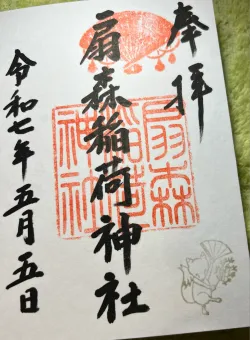 奉拝
扇森稲荷神社
扇森
稲荷
神社
令和七年五月五日